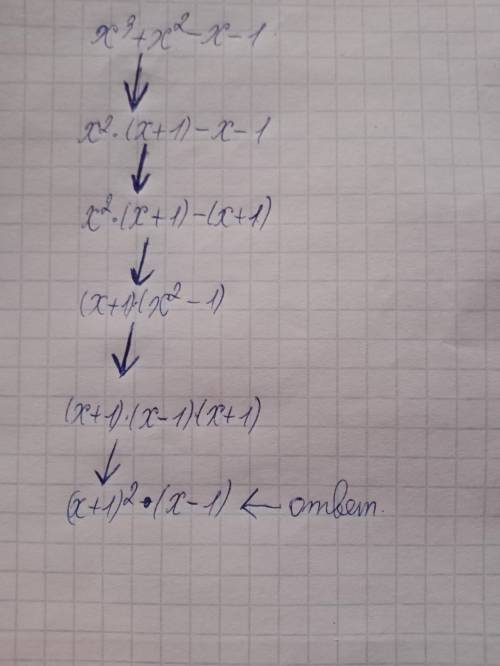 x³+x²-x-1
x²·(x+1)-x-1
x²·(x+1)-(x+1)
(x+1)·(x²-1)
(x+1)·(x-1)·(x+1)
(x+1)²·(x-1) ← ответ.